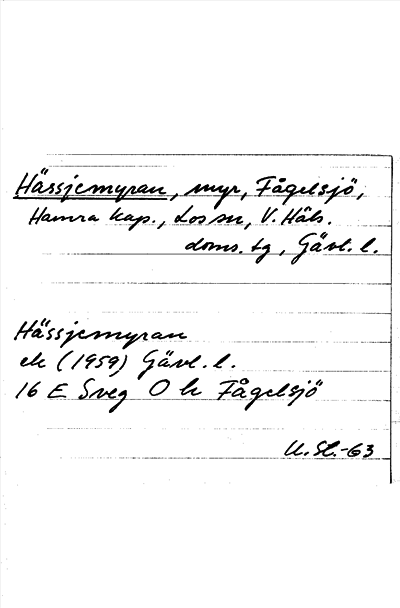 Hässjemyran, myr, Fågelsjö,
Hamra kap., Los sn, V. Häls.
doms. tg, Gävl. l.
Hässjemyran
ek (1959) Gävl. l.
16 E Sveg O k Fågelsjö
U. Sl. -63